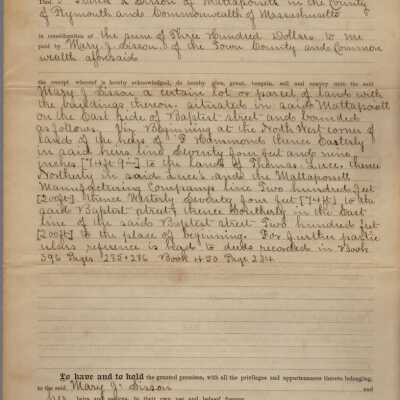 That I David L Sisson of Mattapoisett in the County
of Plymouth and Commonwealth of Massachusetts
in consideration of the sum of Three Hundred Dollars to me
paid by Mary J. Sisson of the Town County and Common
wealth aforesaid
the receipt whereof is hereby acknowledged, do hereby give, grant, bargain, sell and convey unto the said
Mary J Sisson a certain lot or parcel of land with
the buildings thereon situated in said Mattapoisett
on the East side of Baptist street and bounded
as follows. Viz Beginning at the North West corner of
land of the heirs of Hammond thence Easterly
in said heirs line Seventy four feet and nine
inches [74ft 9in] to the lands of Thomas Luce, thence
Northerly in said Luce's and the Mattapoisett
Manufacturing Company's line Two hundred feet
[200ft] thence Westerly Seventy four feet [74ft] to the
said Baptist street, thence Southerly in the East
line of the said Baptist street Two hundred feet
[200ft] to the place of beginning. For further partic
ulars reference is had to deeds recorded in Book
396 Pages 285+286 Book 450 Page 234
To have and to hold the granted premises, with all the privileges and appurtenances thereto belonging,
to the said Mary J. Sisson and
her heirs and assigns, to their own use and behoof forever.